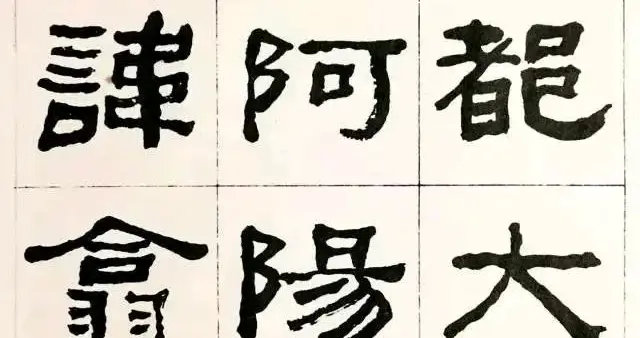 都大
阿陽
諱翕